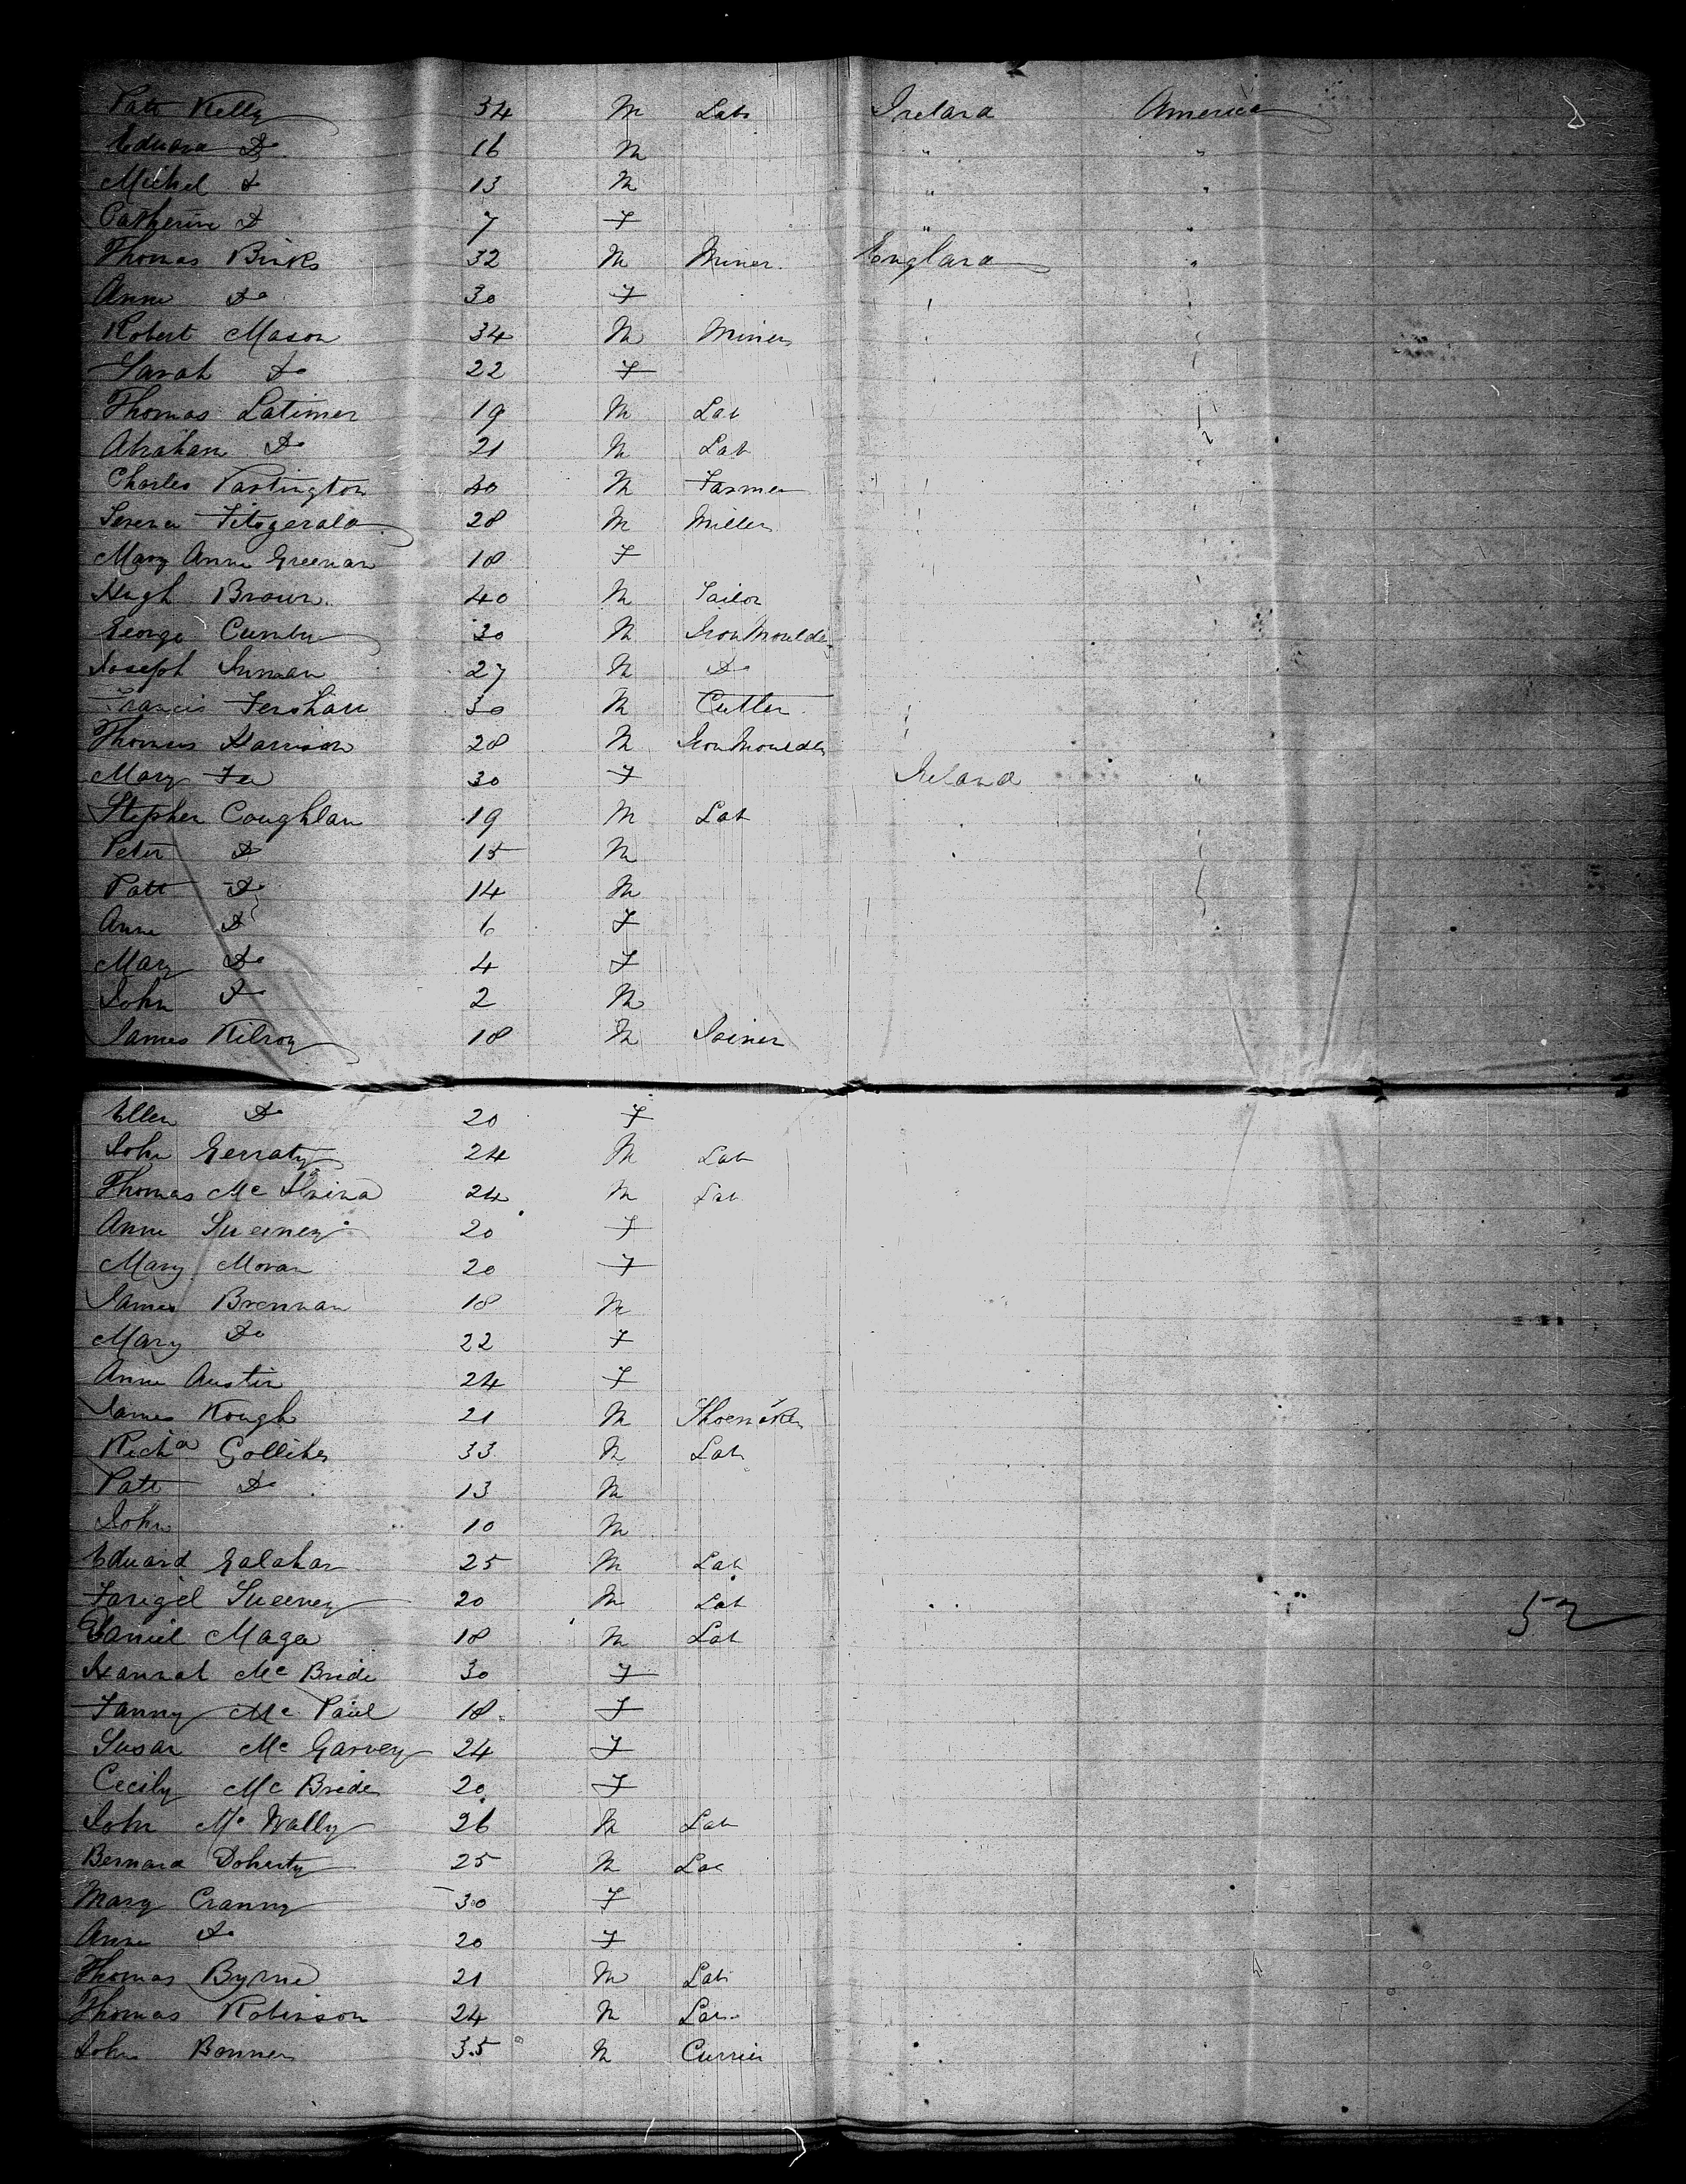 Patt Kelly 34 M Lab Ireland America
Edward Do 16 M " "
Michel Do 13 M " "
Catherine Do 7 F " "
Thomas Binks 32 M Miner England "
Anne Do 30 F
Robert Mason 34 M Miner
Sarah Do 22 F
Thomas Latimer 19 M Lab
Abraham Do 21 M Lab
Charles Partington 30 M Farmer
Fitzgerald 28 M Miller
Mary Anne Greenan 18 F
Hugh Brown 40 M Tailor
George 30 M Iron Moulder
Joseph Inman 27 M Do
Francis 30 M Cutler
Thomas Harrison 28 M Iron Moulder
Mary 30 F Ireland "
Stephen Coughlan 19 M Lab
Peter Do 15 M
Patt Do 14 M
Anne Do 6 F
Mary Do 4 F
John Do 2 M
James Kilroy 18 M Joiner
Ellen Do 20 F
John Gerraty 24 M Lab
Thomas Mc 24 M Lab
Anne Sweeney 20 F
Mary Moran 20 F
James Brennan 18 M
Mary Do 22 F
Anne Austin 24 F
James Kough 21 M Shoemaker
Richd Golliher 33 M Lab
Patt Do 13 M
John 10 M
Edward Galahar 25 M Lab
Farigel Sweeney 20 M Lab
Daniel Magee 18 M Lab
Hannah Mc Bride 30 F
Fanny Mc Paul 18 F
Susan Mc Garvey 24 F
Cecily Mc Bride 20 F
John Mc Nally 26 M Lab
Bernard Doherty 25 M Lab
Mary Cranny 30 F
Anne Do 20 F
Thomas Byrne 21 M Lab
Thomas Robinson 24 M Lab
John Bonner 35 M Currier
52